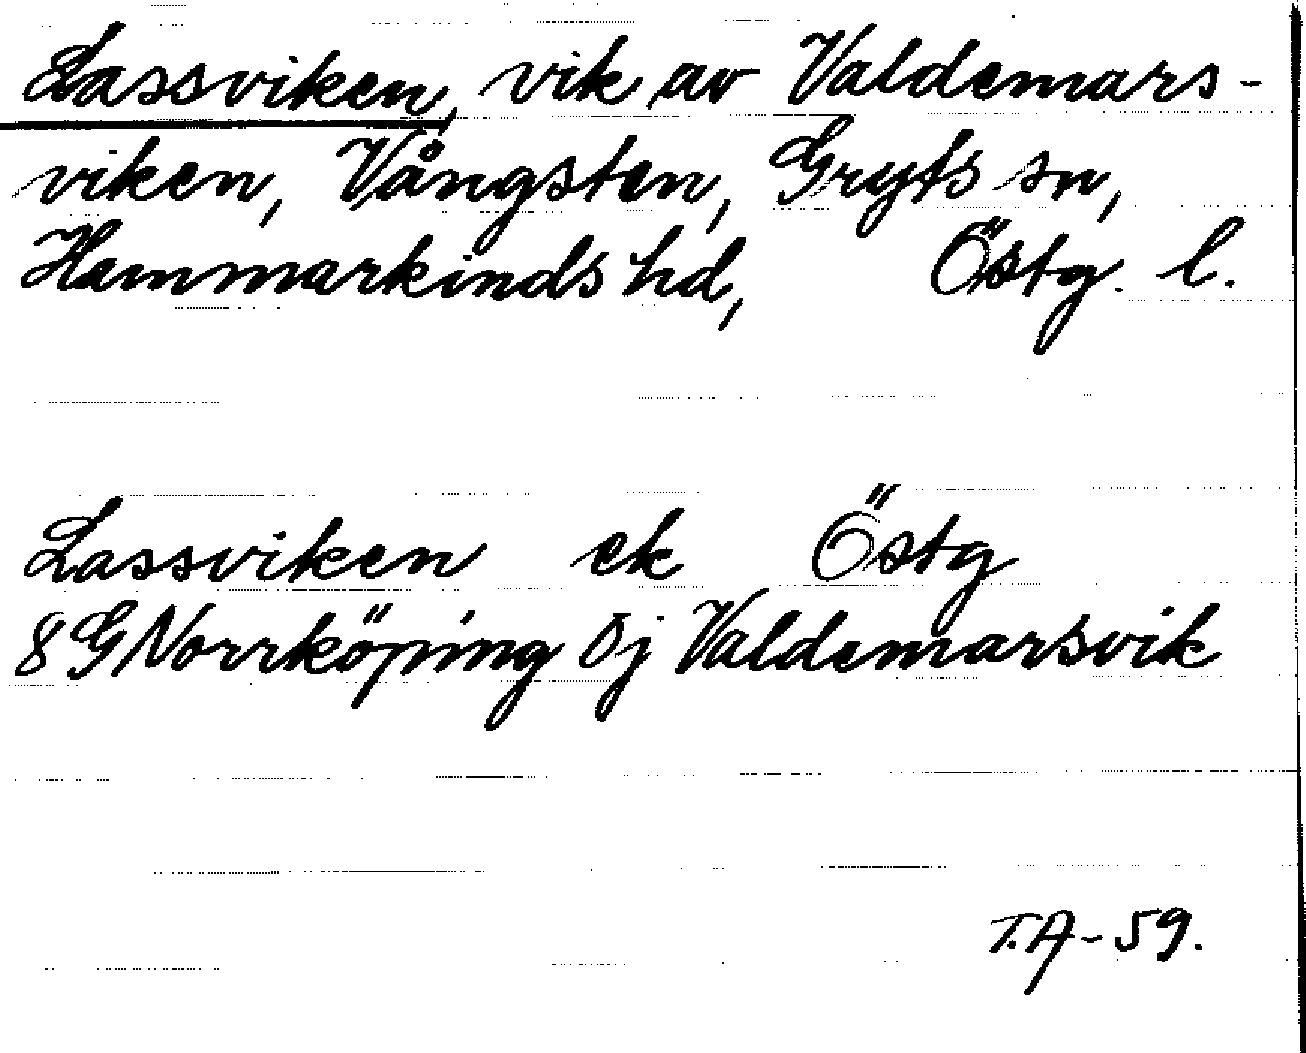 Lassviken, vik av Valdemars-
viken, Vångsten, Gryts sn,
Hammarkinds hd, Östg. l.
Lassviken ek Östg
8G Norrköping öj Valdemarsvik
T.A-59.